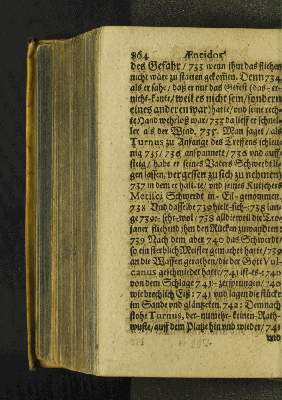 864 Æneidos
des Gefahr / 733 wenn ihm das fliehen
nicht wäre zu statten gekommen. Denn 734
als er sahe / daß er nur das Gefest (das er
nicht kante / weil es nicht sein / sondern
eines anderen war) hatte / und seine rech-
te Hand wehrloß war / 733 da lieff er schnel-
ler als der Wind. 735. Man saget / als
Turnus zu Anfange des Treffens schleu-
nig 735 / 736 anspannete / 736 und auff
steig / habe er seines Vatern Schwerdt lie-
gen lassen, vergessen zu sich zu nehmen)
737 in dem er und seines Kutschers
Metisci Schwerdt in Eil genommen.
738 Und dasselbe 739 hielt sich 738 lan-
ge 739 sehr wol / 738 alldieweil die Tro-
janer fliehend ihm den Rücken zuwandten:
739 Nach dem aber 740 das Schwerdt /
so ein sterblich Meister gemacht hatte / 739
an die Waffen gerathen / die der Gott Vul-
canus geschmiedet hatte / 741 ist es 740
von dem Schlage 741 zersprungen / 740
wie brechlich Eiß: 741 und lagen die stücke
im Sande und glänzeten. 742 Demnach
flohe Turnus, der nunmehr keinen Rath
wuste / auff dem Platze hin und wieder / 743
und